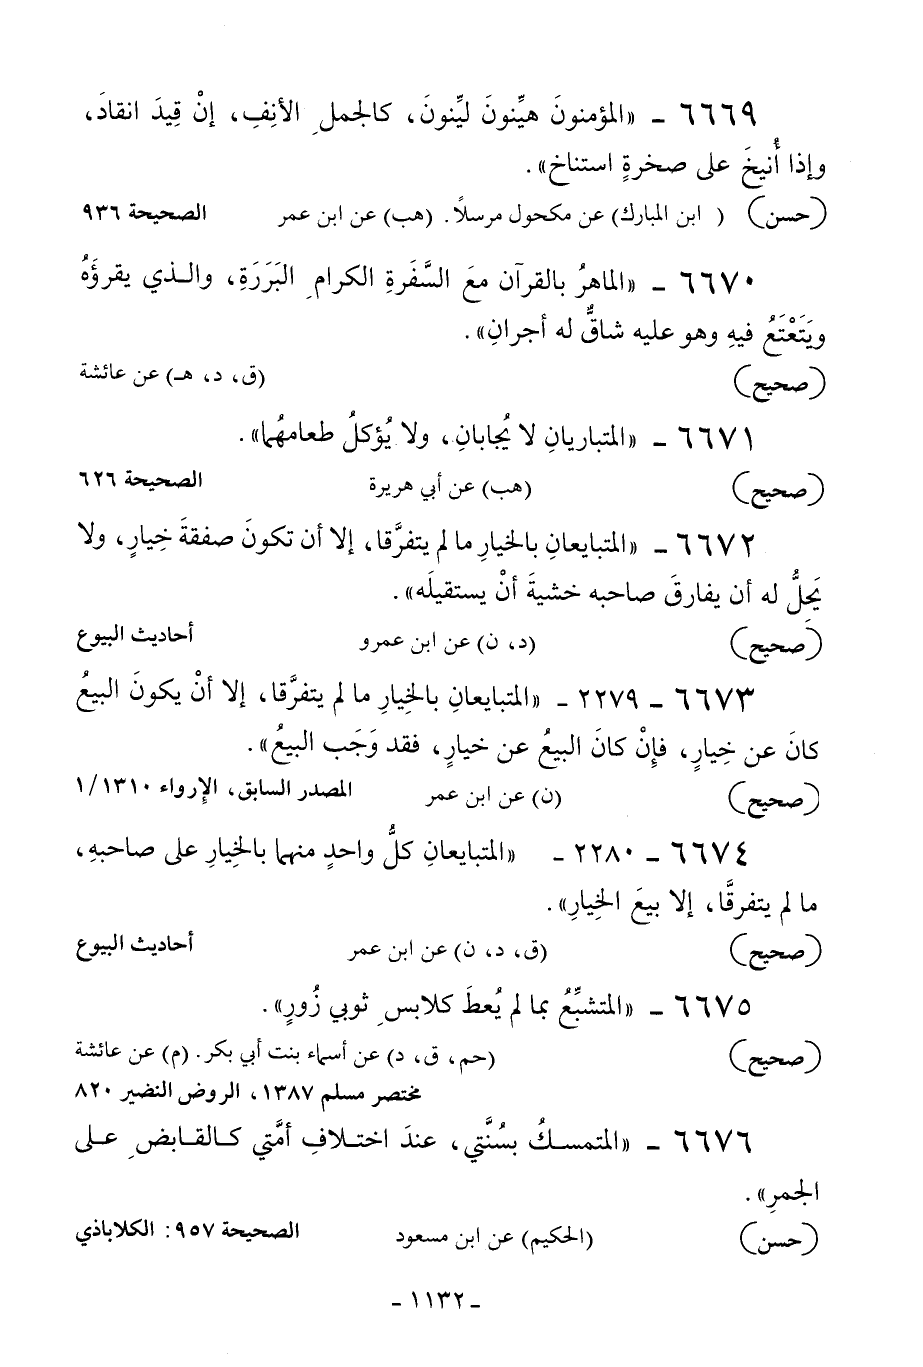 ٦٦٦٩ ـ «المؤمنونَ هيِّنونَ ليِّنونَ، كالجملِ الأنِفِ، إنْ قِيدَ انقادَ،
وإذا أُنيخَ على صخرةٍ استناخَ».
(حسن) ( ابن المبارك) عن مكحول مرسلاً. (هب) عن ابن عمر الصحيحة ٩٣٦
٦٦٧٠ ـ «الماهرُ بالقرآن معَ السَّفَرةِ الكرامِ البَرَرَةِ، والـذي يقرؤَهُ
ويَتَعْتَعُ فيهِ وهو عليه شاقٌّ له أجرانِ».
(صحيح) (ق، د، هـ) عن عائشة
٦٦٧١ ـ «المتباريانِ لا يُجابانِ، ولا يُؤكلُ طعامهُما».
(صحيح) (هب) عن أبي هريرة الصحيحة ٦٢٦
٦٦٧٢ ـ «المتبايعانِ بالخيارِ ما لم يتفرَّقا، إلا أن تكونَ صفقةَ خِيارٍ، ولا
يَحِلُّ له أن يفارقَ صاحبه خشيةَ أنْ يستقيلَه».
(صحيح) (د، ن) عن ابن عمرو أحاديث البيوع
٦٦٧٣ ـ ٢٢٧٩ ـ «المتبايعانِ بالخِيارِ ما لم يتفرَّقا، إلا أنْ يكونَ البيعُ
كانَ عن خِيارٍ، فإِنْ كانَ البيعُ عن خيارٍ، فقد وَجَب البيعُ».
(صحيح) (ن) عن ابن عمر المصدر السابق، الإرواء ١/١٣١٠
٦٦٧٤ ـ ٢٢٨٠ ـ «المتبايعانِ كلُّ واحدٍ منهما بالخِيارِ على صاحبهِ،
ما لم يتفرقَّا، إلا بيعَ الخِيارِ».
(صحيح) (ق، د، ن) عن ابن عمر أحاديث البيوع
٦٦٧٥ ـ «المتشبِّعُ بما لم يُعطَ كلابسِ ثوبي زُورٍ».
(صحيح) (حم، ق، د) عن أسماء بنت أبي بكر. (م) عن عائشة
مختصر مسلم ١٣٨٧، الروض النضير ٨٢٠
٦٦٧٦ ـ «المتمسـكُ بسُنَّتي، عندَ اختـلافِ أمَّتي كـالقـابضِ عـلى
الجمرِ».
(حسن) (الحكيم) عن ابن مسعود الصحيحة ٩٥٧: الكلاباذي
ـ ١١٣٢ ـ